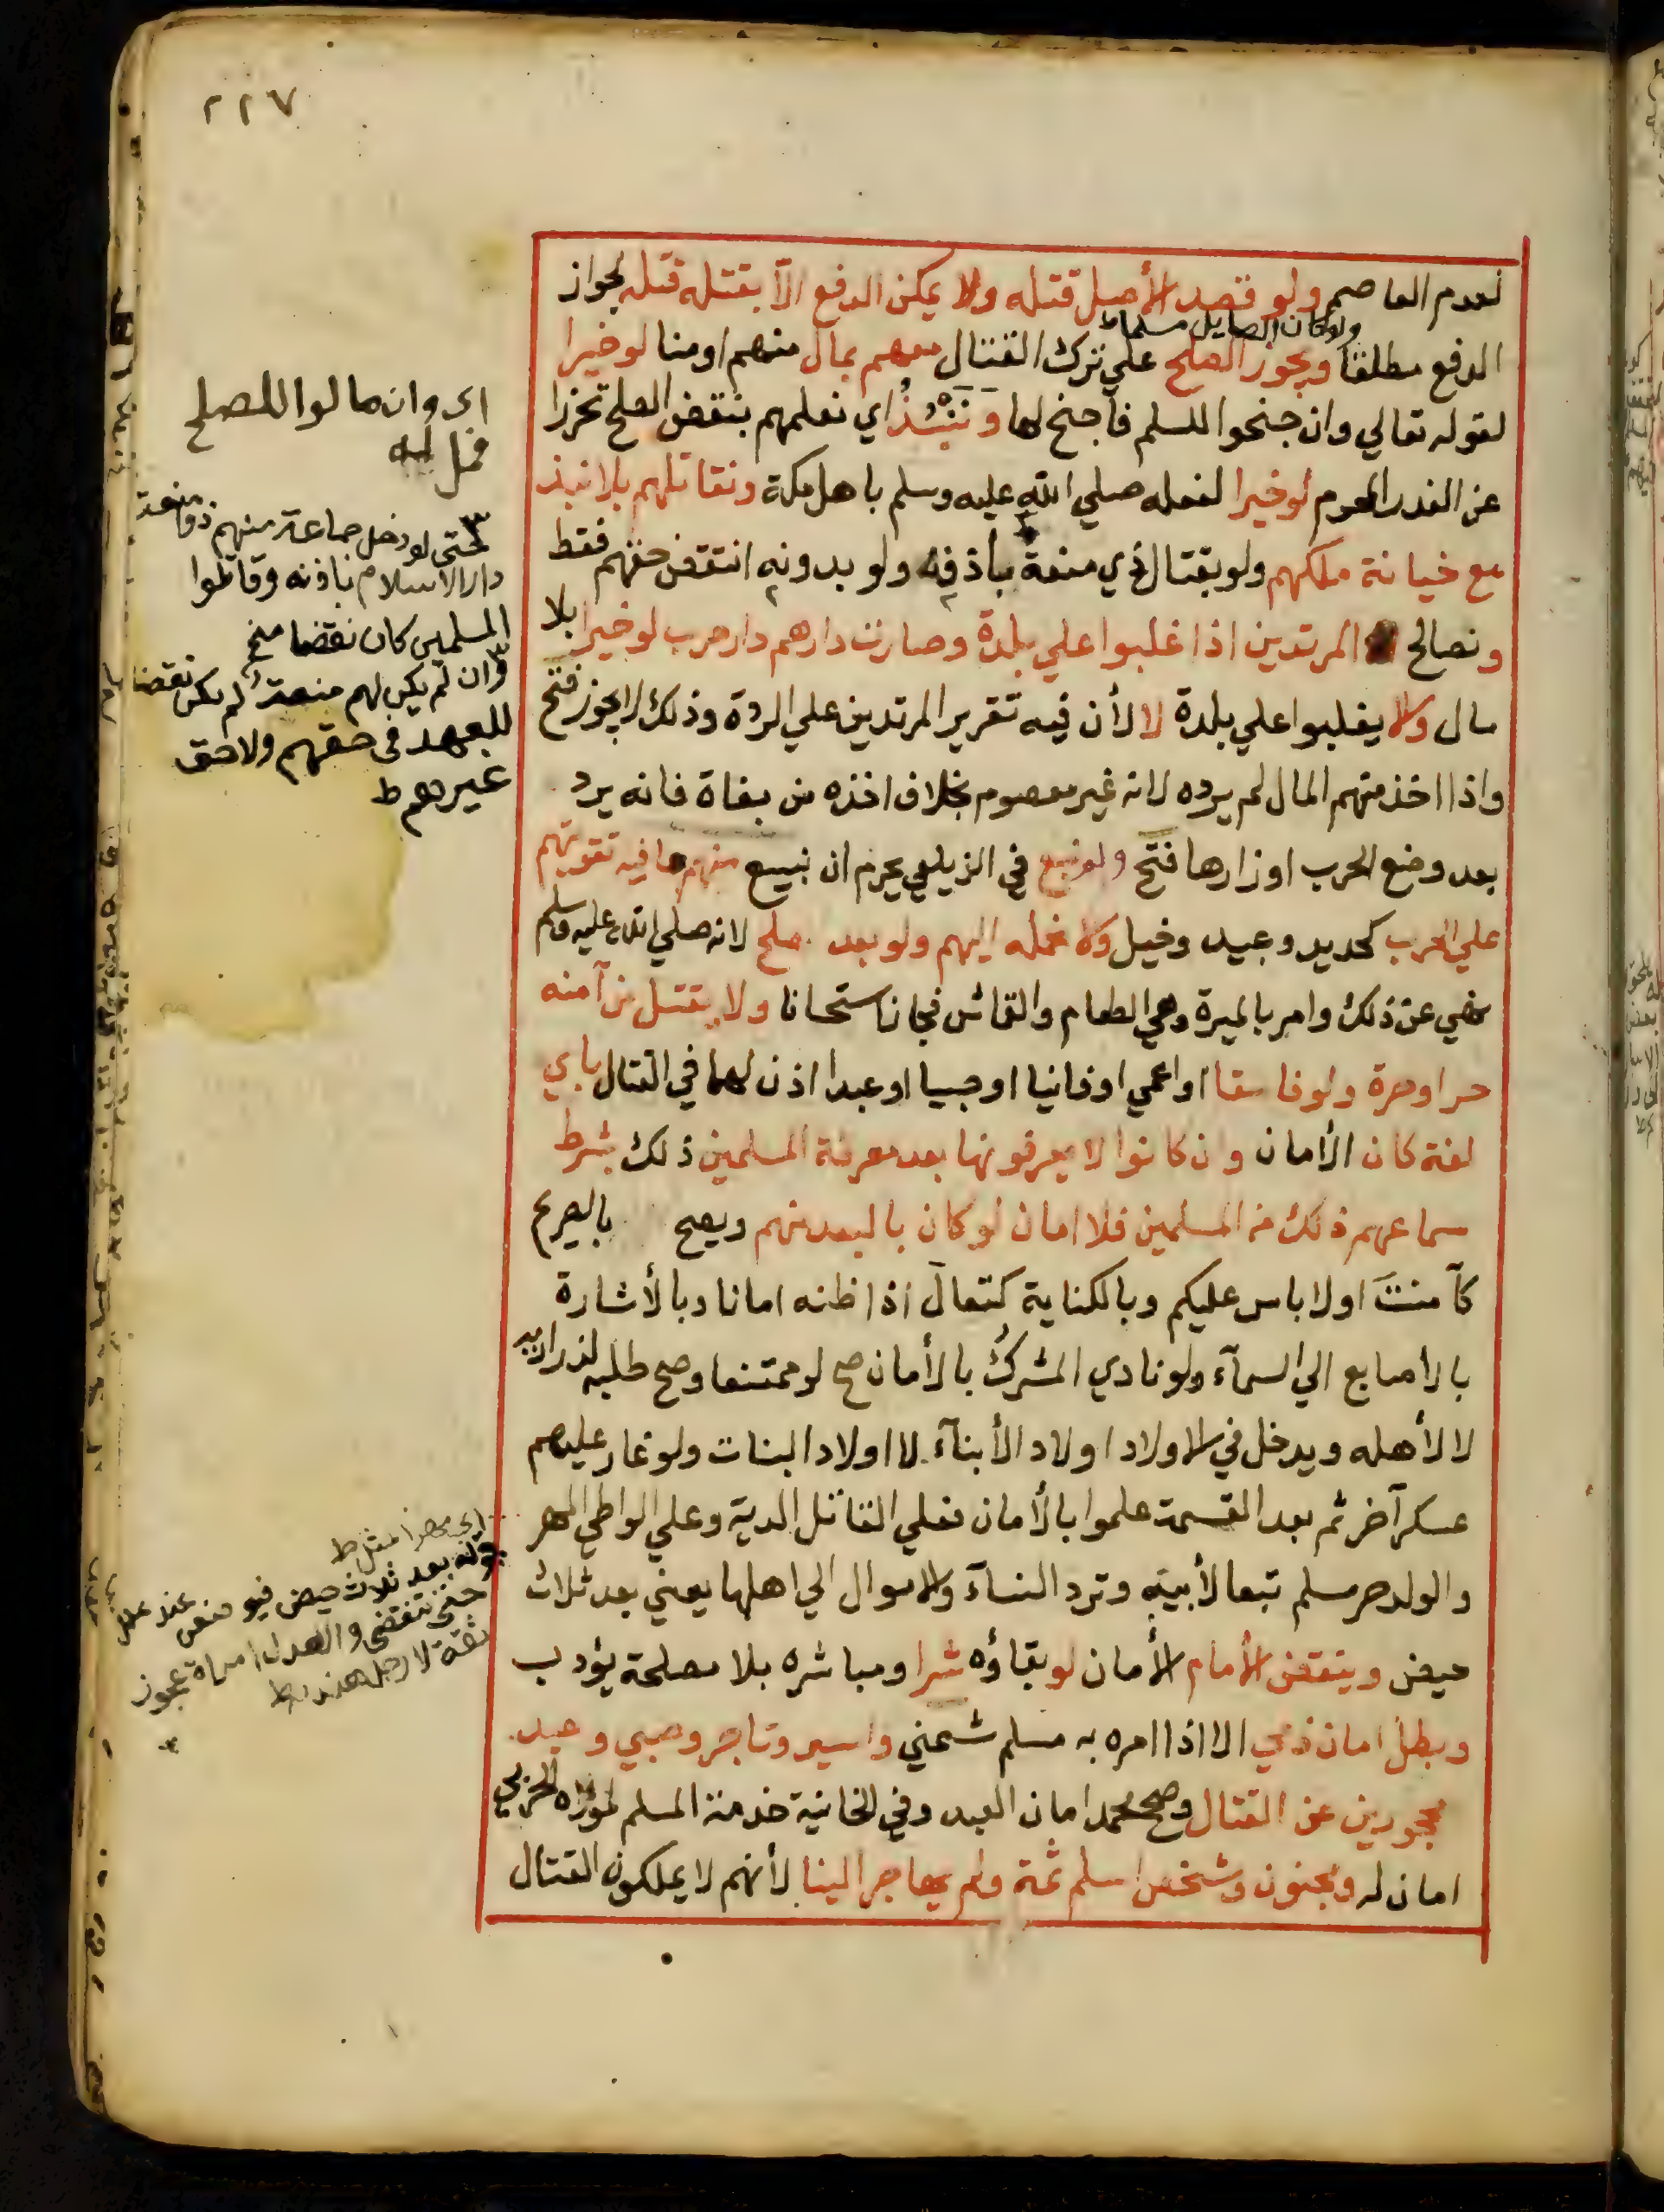 ٢٢٧
لعدم العاصم ولو قصد الأصل قتله ولا يمكن الدفع الآ بقتله قتله لجواز
ولو كان الصايل مسلما ط
الدفع مطلقا ويجوز الصلح علي ترك القتال معهم بمال منهم او منا لو خيرا
لقوله تعالي وان جنحوا للسلم فاجنح لها وَنَنْبِذُ اي نعلمهم بنقض الصلح تحرزا
عن الغدر المحرم لو خيرا لفعله صلي الله عليه وسلم باهل مكة ونقاتلهم بلا نبذ
مع خيانة ملكهم ولو بقتال ذي منعة بأذنه ولو بدونه انتقض حقهم فقط
ونصالح المرتدين اذا غلبوا علي بلدة وصارت دارهم دار حرب لو خيرا بلا
مال والا يغلبوا علي بلدة لا لأن فيه تقرير المرتدين علي الردة وذلك لا يجوز فتح
واذا اخذ منهم المال لم يرده لانه غير معصوم بخلاف اخذه من بغاة فانه يرد
بعد وضع الحرب اوزارها فتح ولم نبع في الزيلعي يحرم ان نبيع منهم ما فيه تقويتهم
علي الحرب كحديد وعبيد وخيل ولا نحمله اليهم ولو بعد صلح لانه صلي الله عليه وسلم
نهي عن ذلك وامر بالميرة وهي الطعام والقماش فجاز استحسانا ولا يقتل من آمنه
حر او حرة ولو فاسقا او اعمي او فانيا او صبيا او عبدا اذن لهما في القتال باي
لغة كان الأمان وان كانوا لا يعرفونها بعد معرفة المسلمين ذلك بشرط
سماعهم ذلك من المسلمين فلا امان لو كان بالبعد منهم ويصح بالصريح
كآمنت اولا باس عليكم وبالكناية كتعال اذا ظنه امانا وبالأشارة
بالاصابع الي السمآء ولو نادي المشرك بالأمان صح لو ممتنعا وصح طلبه لذراريه
لا لأهله ويدخل في الاولاد اولاد الأبنآء لا اولاد البنات ولو غار عليهم
عسكر آخر ثم بعد القسمة علموا بالأمان فعلي القاتل الدية وعلي الواطي المهر
والولد حر مسلم تبعا لأبيه وترد النسآء والاموال الي اهلها يعني بعد ثلاث
حيض وينقض الأمام الأمان لو بقاؤه شرا ومباشره بلا مصلحة يؤدب
وبطل امان ذمي الا اذا امره به مسلم شمني واسير وتاجر وصبي وعبد
محجورين عن القتال وصح محمد امان العبد وفي الخانية خدمة المسلم لمولاه الحربي
امان له ومجنون وشخص اسلم ثمة ولم يهاجر الينا لأنهم لا يملكون القتال
اى وان مالوا للصلح
فمل اليه
حتى لو دخل جماعة منهم ذو منعة
دار الاسلام باذنه وقاتلوا
المسلمين كان نقضا منح
وان لم يكن لهم منعة لم يكن نقضا
للعهد فى حقهم ولا حق
غيرهم ط
ط
بعد ثلاث حيض
حتى تنقضى والعدل امراة عجوز
ثقة لا رجل